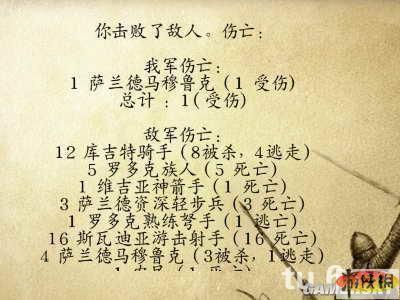 你击败了敌人。伤亡:
我军伤亡:
1 萨兰德马穆鲁克 (1 受伤)
总计 : 1(受伤)
敌军伤亡:
12 库吉特骑手 (8被杀, 4逃走)
5 罗多克族人 (5 死亡)
1 维吉亚神箭手 (1 死亡)
3 萨兰德资深轻步兵 (3 死亡)
1 罗多克熟练弩手 (1 逃亡)
16 斯瓦迪亚游击射手 (16 死亡)
4 萨兰德马穆鲁克 (3被杀, 1逃走)
游侠网